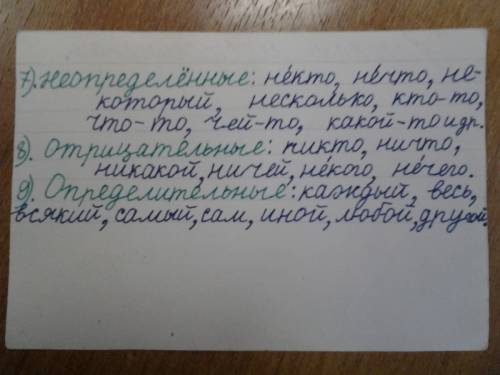 7). Неопределённые: не́кто, не́что, не-
который, несколько, кто-то,
что-то, чей-то, какой-то и др.
8). Отрицательные: никто, ничто,
никакой, ничей, не́кого, не́чего.
9). Определительные: каждый, весь,
всякий, самый, сам, иной, любой, другой.